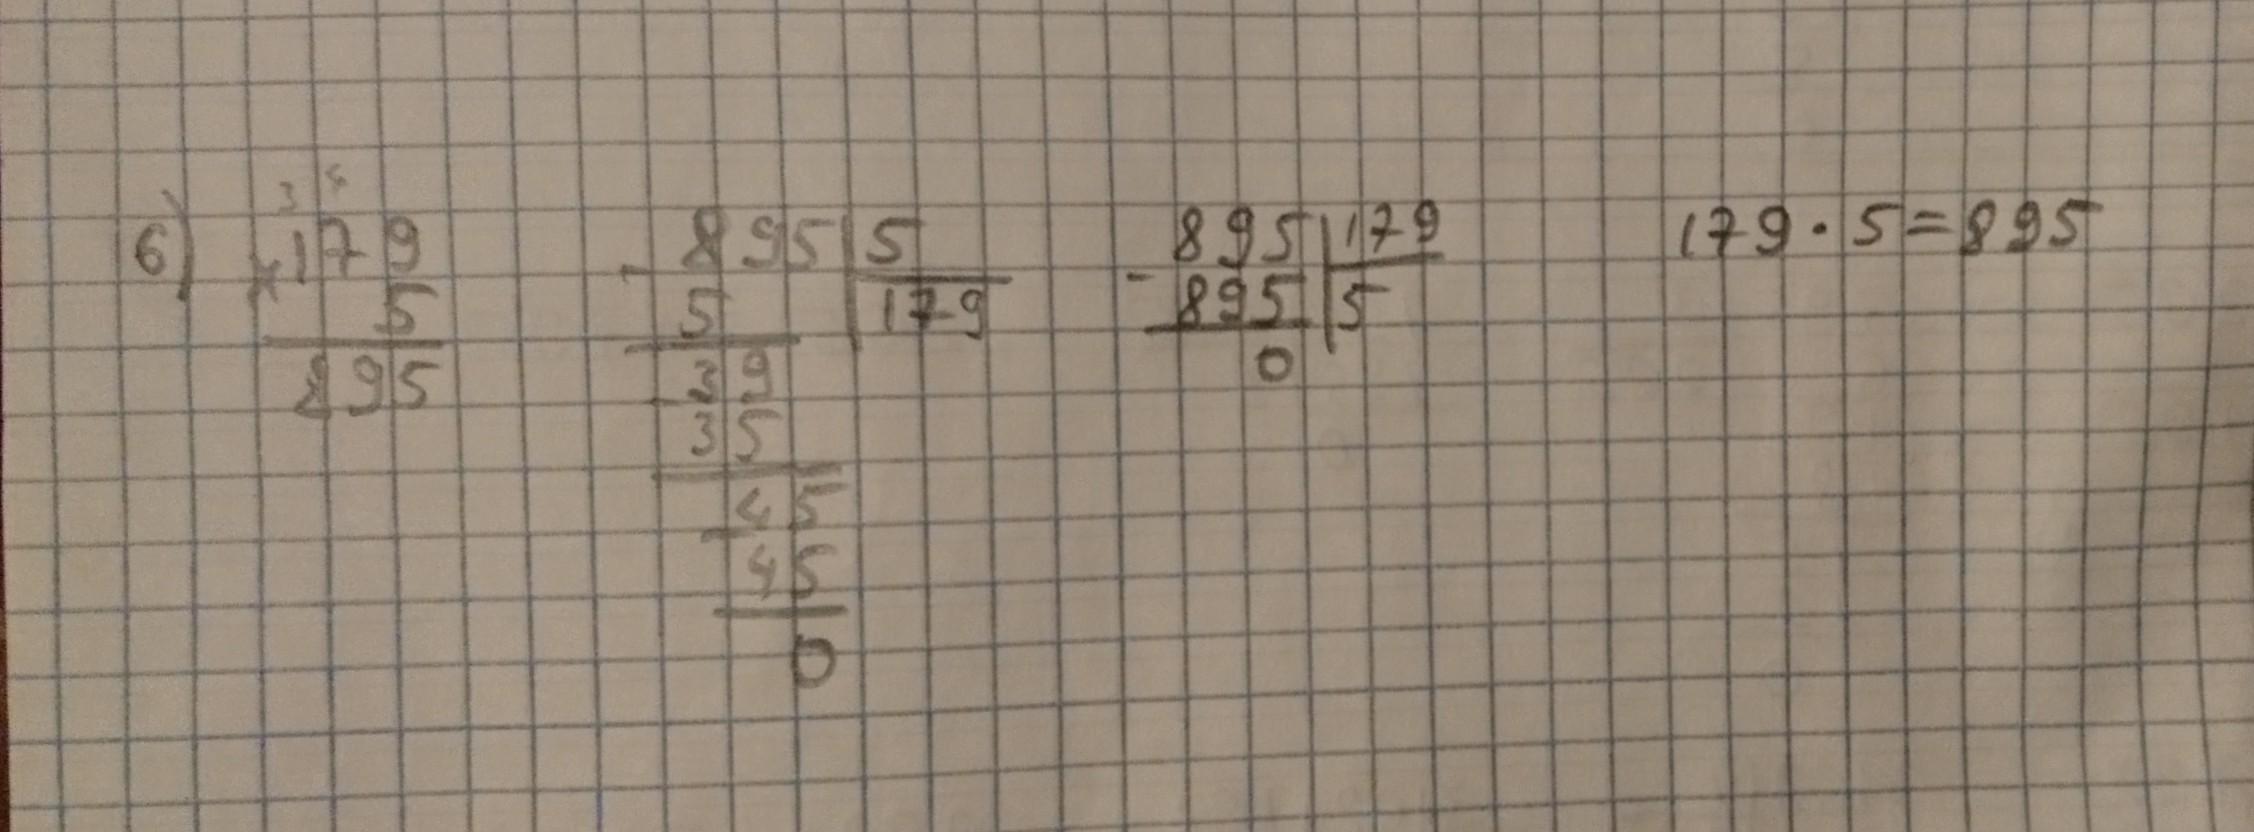 3 4
6) ×179 -895|5 -895|179 179·5=895
5 5 179 895 5
895 -39 0
35
-45
45
0